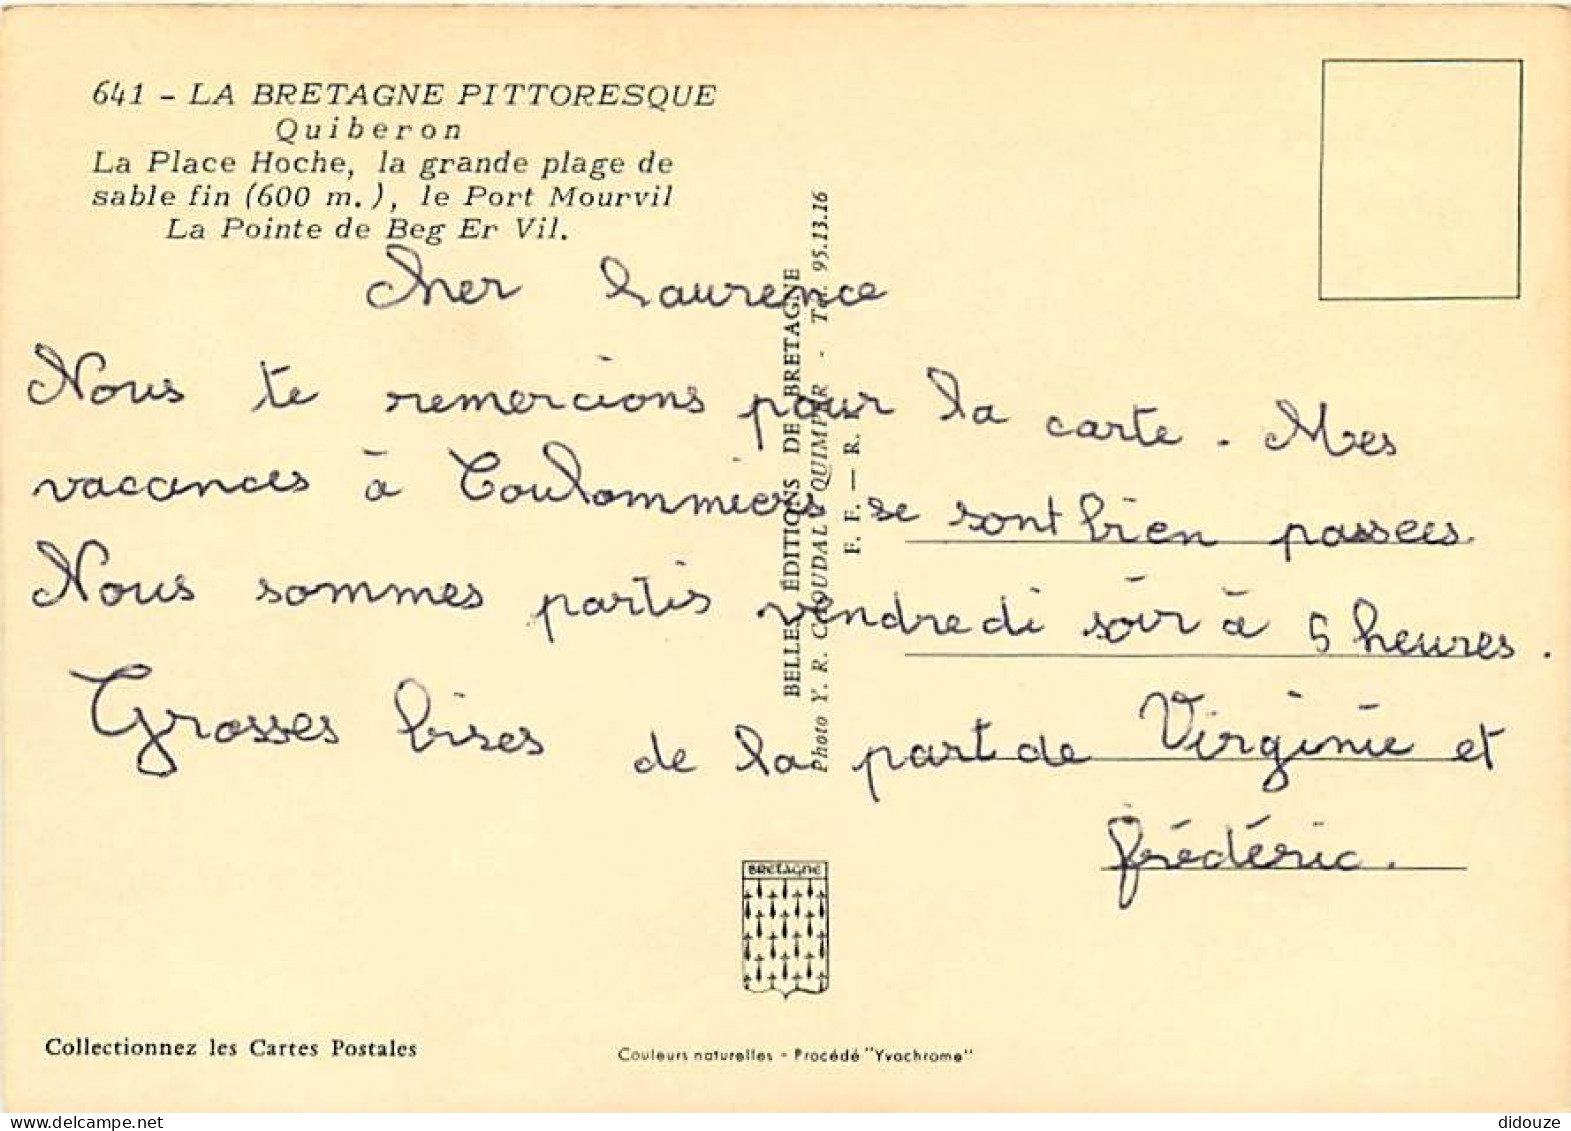 641 - LA BRETAGNE PITTORESQUE
Quiberon
La Place Hoche, la grande plage de
sable fin (600 m.), le Port Mourvil
La Pointe de Beg Er Vil.
cher Laurence
Nous te remercions pour la carte. Mes
vacances à Coulommiers se sont bien passees.
Nous sommes partis vendredi soir à 5 heures.
Grosses bises de la part de Virginie et
frédéric.
BELLES ÉDITIONS DE BRETAGNE
Photo Y. R. CAOUDAL QUIMPER - Tél. 95.13.16
F. F. — R. F.
BRETAGNE
Collectionnez les Cartes Postales
Couleurs naturelles - Procédé "Yvachrome"
didouze